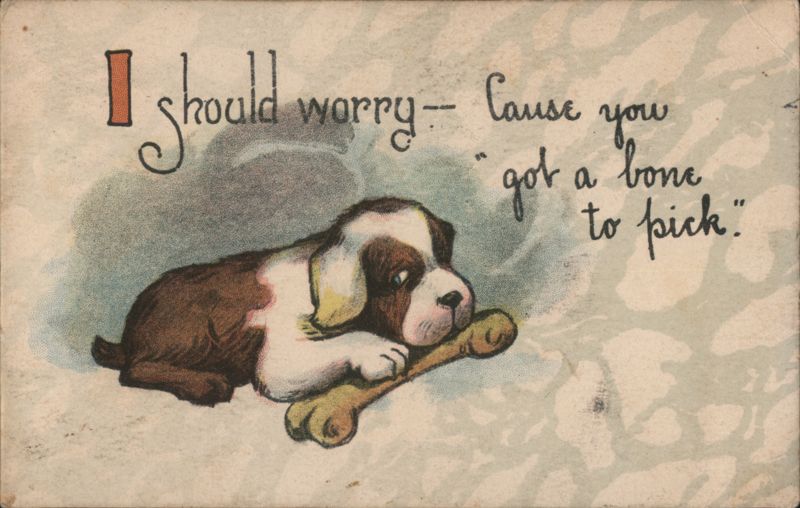 I should worry— Cause you
"got a bone
to pick."